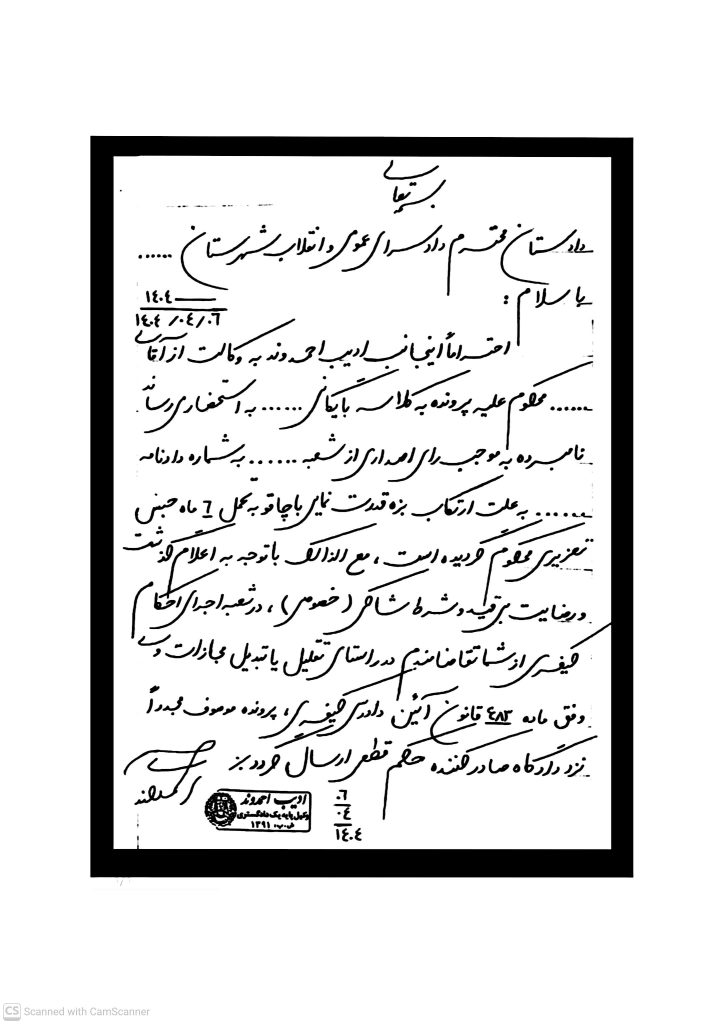 بسمه تعالی
دادستان محترم دادسرای عمومی و انقلاب شهرستان ......
با سلام :
۱۴۰۴ ــــــ
۱۴۰۴ /۰۴/۰۶
احتراماً اینجانب ادیب احمدوند به وکالت از آقای
...... محکوم علیه پرونده به کلاسه بایگانی ...... به استحضار می رساند
نامبرده به موجب رای اصداری از شعبه ...... به شماره دادنامه
...... به علت ارتکاب بزه قدرت نمایی با چاقو به تحمل ۶ ماه حبس
تعزیری محکوم گردیده است ، مع الذالک با توجه به اعلام گذشت
و رضایت بی قید و شرط شاکی (خصوصی) ، در شعبه اجرای احکام
کیفری از شما تقاضامندم در راستای تقلیل یا تبدیل مجازات وی
وفق ماده ۴۸۳ قانون آئین دادرسی کیفری ، پرونده موصوف مجدداً
نزد دادگاه صادر کننده حکم قطعی ارسال گردد
ادیب احمدوند
وکیل پایه یک دادگستری
ش.پ. ۱۳۹۱
۰۶
۰۴
۱۴۰۴
CS Scanned with CamScanner